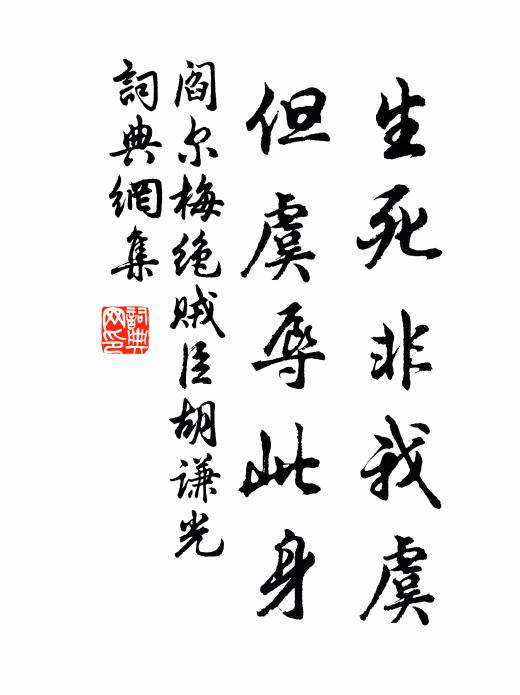 生死非我虞
但虞辱此身
阎尔梅绝贼臣胡谦光
詞典網集
詞典网印